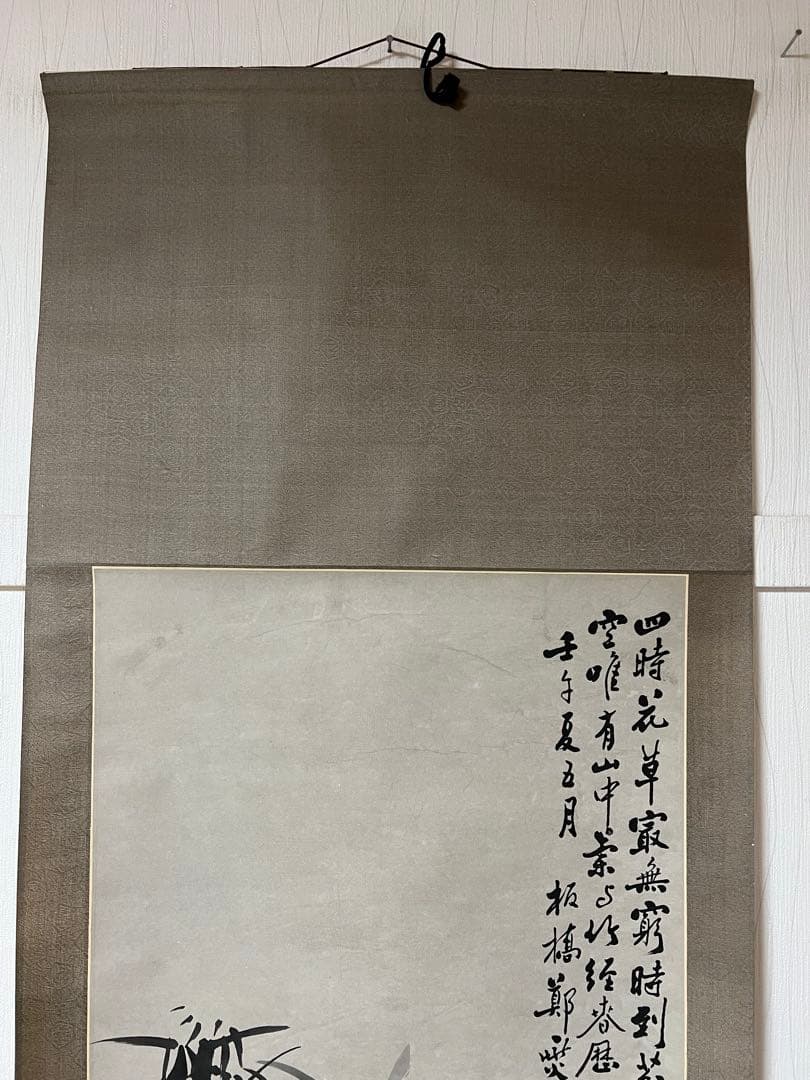 四時花草寂無窮時到芬
空唯有山中蘭与竹經春歷
壬午夏五月 板橋鄭燮